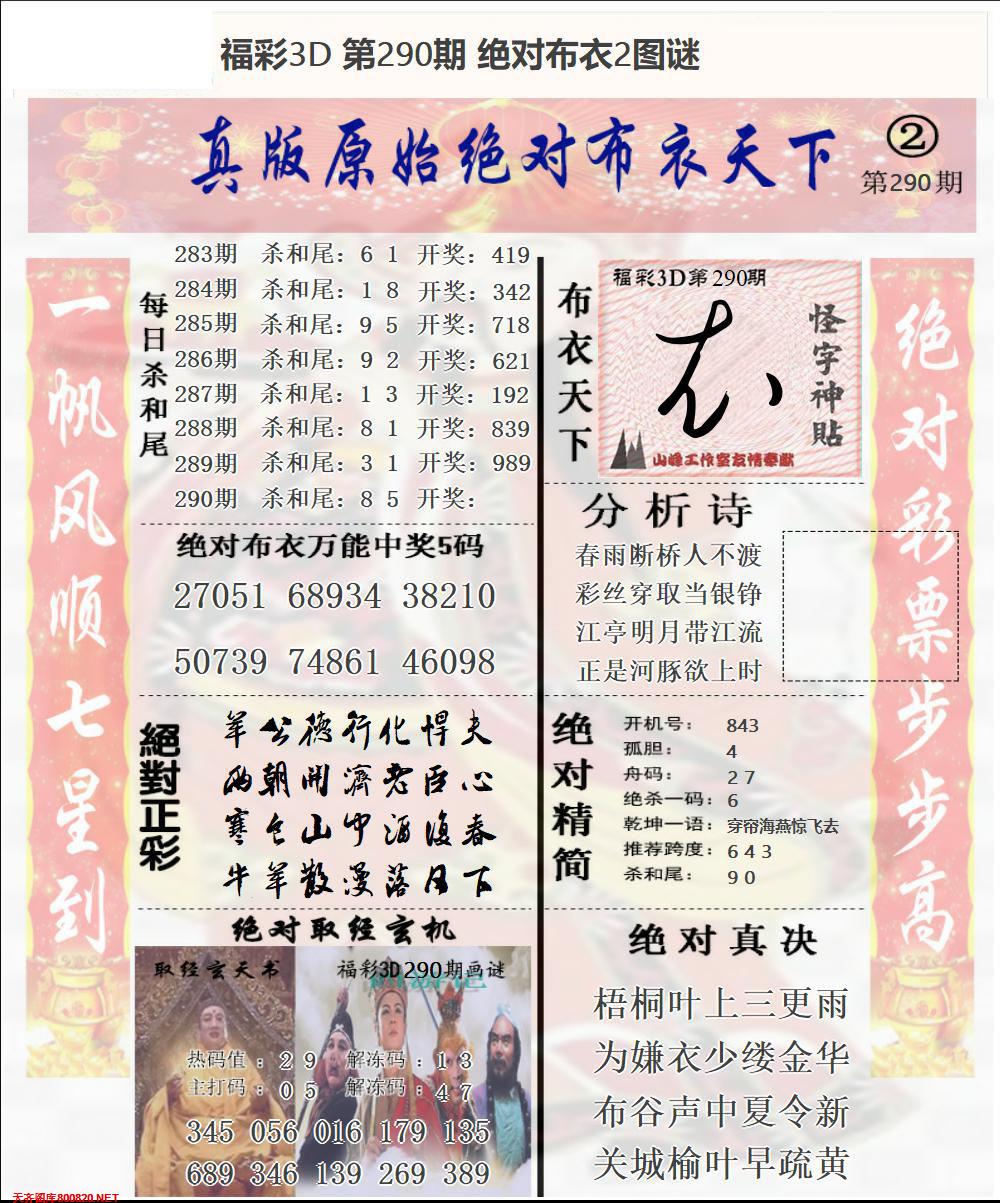 福彩3D 第290期 绝对布衣2图谜
真版原始绝对布衣天下
②
第290期
一帆风顺七星到
每日杀和尾
283期 杀和尾：6 1 开奖：419
284期 杀和尾：1 8 开奖：342
285期 杀和尾：9 5 开奖：718
286期 杀和尾：9 2 开奖：621
287期 杀和尾：1 3 开奖：192
288期 杀和尾：8 1 开奖：839
289期 杀和尾：3 1 开奖：989
290期 杀和尾：8 5 开奖：
绝对布衣万能中奖5码
27051 68934 38210
50739 74861 46098
絕對正彩
羊公德行化悍夫
两朝開濟老臣心
寒食山中酒復春
牛羊散漫落日下
绝对取经玄机
取经玄天书
福彩3D290期画谜
热码值：2 9 解冻码：1 3
主打码：0 5 解冻码：4 7
345 056 016 179 135
689 346 139 269 389
布衣天下
福彩3D第290期
怪字神贴
山峰工作室友情奉献
分析诗
春雨断桥人不渡
彩丝穿取当银铮
江亭明月带江流
正是河豚欲上时
绝对精简
开机号：843
孤胆：4
舟码：2 7
绝杀一码：6
乾坤一语：穿帘海燕惊飞去
推荐跨度：6 4 3
杀和尾：9 0
绝对真决
梧桐叶上三更雨
为嫌衣少缕金华
布谷声中夏令新
关城榆叶早疏黄
绝对彩票步步高
天齐图库800820.NET